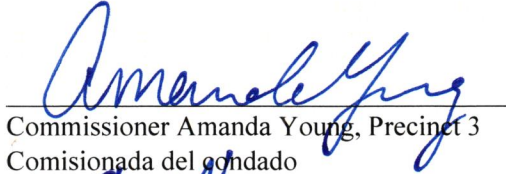 Amanda Young
Commissioner Amanda Young, Precinct 3
Comisionada del condado